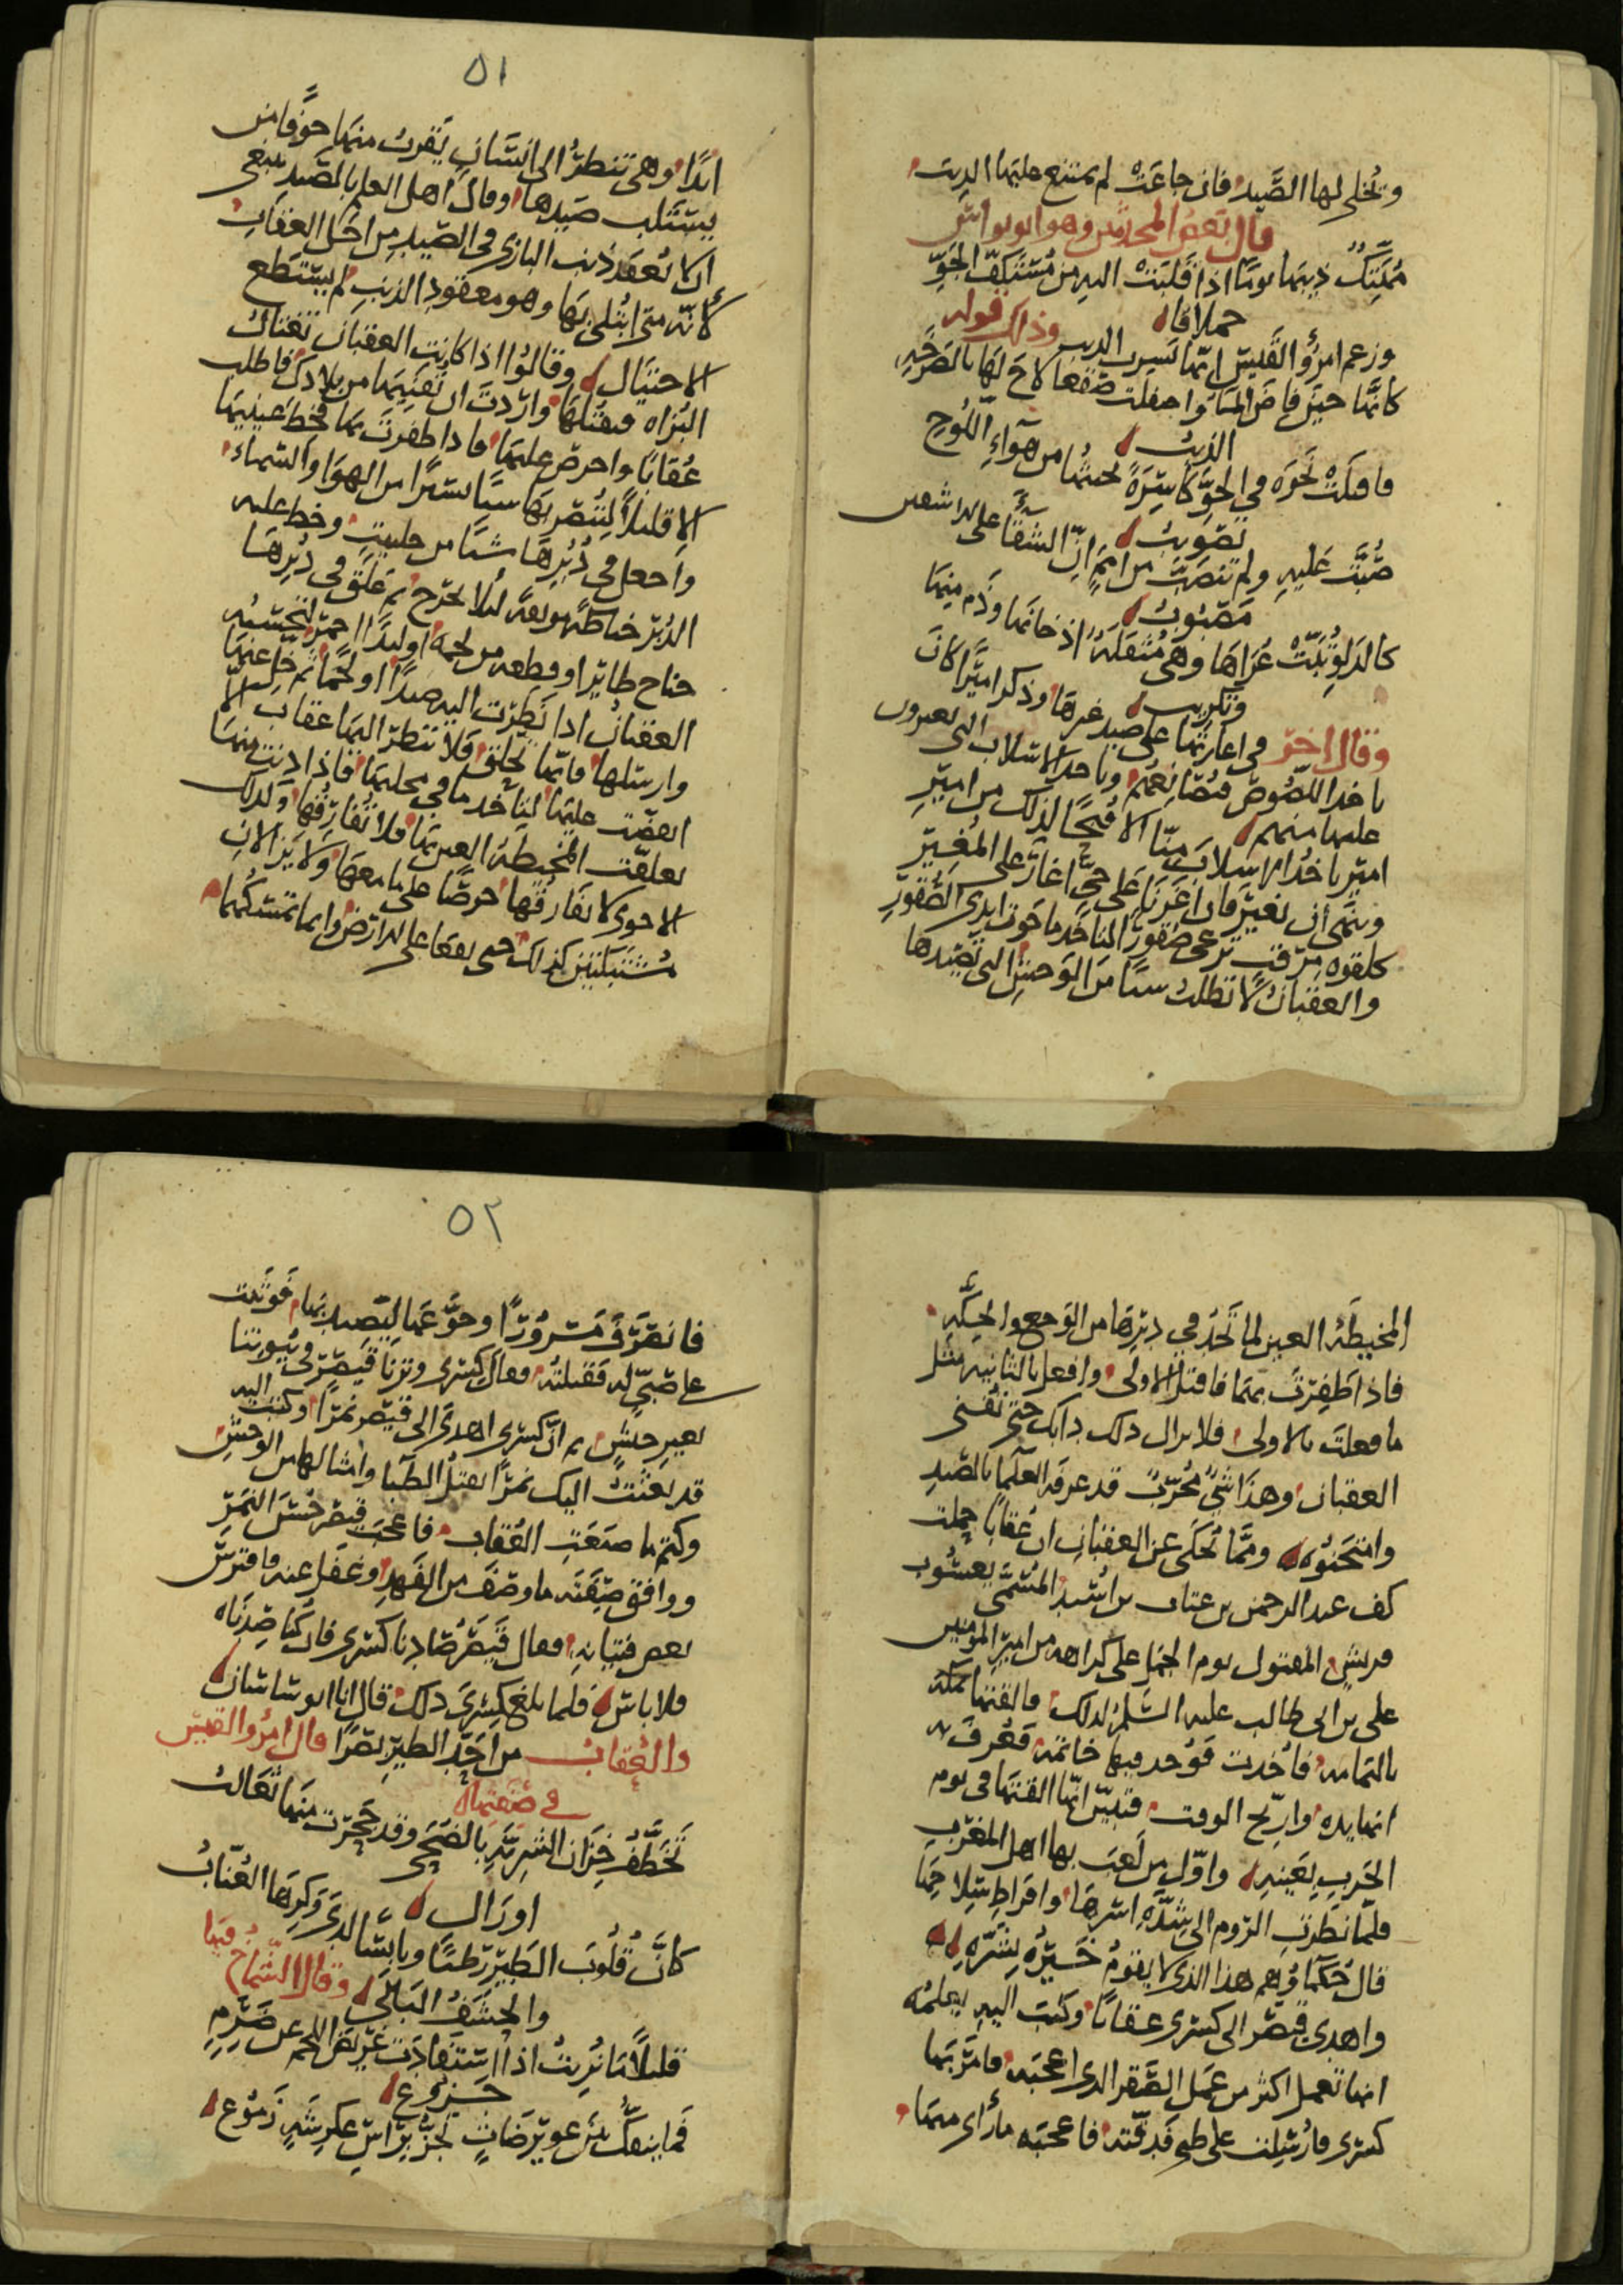 وتخلى لها الصَّيد فان جاعَتْ لم يمتنع عليها الذيب
قال بعض المحدثين وهو ابو نواس
اذا قلبَتْ اليه من الجَوِّ
حملاقا
وزعم امرؤُ القَيس انّها تسرب الذيب وذلك قوله
كانّها حين فاض الماء واحفلت صقعا لاح لها بالصَّرحَةِ
الذيبُ
فاقبلَتْ نحوَه في الجوِّ كاسِرَةً يحثها من هوآءِ اللُّوحِ
تصويبُ
صُبَّت عَليهِ ولم تنصَبَّ من امَمٍ انّ الشقآءَ على الاشقين
مَصبُوبُ
كالدَلوِ بُتَّتْ عُرَاها وهي مُثقَلَةٌ اذ خانَها وذَم منها
وتكريب
وقال اخر في اغارتها على صيد غيرها وذكر اميرًا كان
ياخذ اللصُوص وياخذ الاسلاب التي يغيرون
عليها منهم
امير ياخذ الاسلابَ مِنّا الا قُبحًا لذلك من اميرِ
ونتمى أن نغير فان اغرنا على حيٍّ اغارَ على المُغيرِ
كلقوه مرقب ترعى صقورًا لتاخذ ما حَوت ايدى الصُّقورِ
والعقبانُ لا تطلبُ شيئا مَنَ الوَحشِ التي تصيدها
٥١
ابدًا وهي تنظرُ الى انسَانٍ يَقربُ منها خوفًا من
يستلب صَيدها وقال اهل العلم بالصّيد ينبغى
ان لا تُعقَد ذنب البازى في الصّيد من اجل العقاب
لأنّه متى ابتُلى بها وهو معقود الذنبِ لم يستطع
الاحتيال وقالوُا اذا كانت العقبان تغتالُ
البُزاه فتقتلها واردتَ ان تُفنِيَها من بلادك فاطلب
عُقابًا واحرص عليها فاذا ظفرتَ بها فخط عَينيها
الا قليلاً لتُبصِر بها شيًا يسيرًا من الهوَا والسَماء
واجعل في دُبُرِهَا شيًا من حلتيت وخط عليه
الدُبرَ خياطةً موثقةً لئلا يخرج ثم عَلّق في دُبرِهَا
جناح طايرٍ او قطعه من لحمه او لبدًا احمر لتحسبُه
العقبانُ اذا نظرت اليه صيدًا او لحمًا ثم خلِّ عنها
وارسلها فانّها تحلق فلا تنظر اليها عقاب الاّ
انقضّت عليها ليَاخُذ ما في مخلبها فاذا دنَت منها
تعلّقت المخيطَة العين بها فلا تُفارقُها وكذلك
الاخرى لا تفارقُها حرصًا على ما معها ولا يَزالانِ
مُشتبكَينِ كذلك حتى يقعَا على الارض وانما تمسكها
المخيطَة العين لما تَجدُ في دبرِهَا من الوَجع والحِكَّهِ
فاذا ظَفِرتَ بهما فاقتل الاولى وافعل بالثانيه مثل
ما فعلتَ بالاولى فلا يزال ذلك دابك حتى تُفنى
العقبان وهذا شيٌ مجرّبٌ قد عرفَه العلماء بالصَّيدِ
وامتحنُوه وممَّا تُحكى عن العقبانِ ان عُقابًا حملت
كف عبد الرحمن بن عتاب بن اسيد المُسمَّى يعسُوب
قريشٍ المقتول يوم الجَمل على كراهه من اميرِ المؤمنين
على بن ابى طالب عليه السَّلم لذلك فالقتها بمكّةَ
باليَمامه فاُخذت فوُجد فيها خاتمهُ فعُرفَ به
انها يده وارّخ الوقت فتبيّنَ انّها القتها في يوم
الحَربِ بعَينِه واوّل من لَعِبَ بها اهل المغربِ
فلمّا نظرَت الرّوم الى شدّةِ اسرها وافراطِ سِلاحِهَا
قال حُكماؤهم هذا الذى لا يقومُ خَيرُهُ بشرّهِ
واهدى قيصَر الى كسرى عقابًا وكتبَ اليهِ يعلمُه
انها تعمل اكثر من عَمَلِ الصَّقر الذى اعجبَه فامَر بها
كسرى فارُسلت على ظبي فدقّته فاعجبَه ما رأى منها
٥٢
فانصَرَفَ مَسروُرًا وجَوَّعَها ليَصيد بهَا فوَثَبت
على صَبيٍّ له فقتلتهُ فقال كسرى وتَرنا قيصَرُ في بُيوتنا
بغير جَيشٍ ثم انّ كسرى اهدَى الى قيصر نَمرًا وكتبَ اليه
قد بعَثتُ اليك نمرًا يقتلُ الظبَا وامثالها من الوَحشِ
وكتم ما صنعَتِ العُقاب فاعجَب قيصرَ حُسنَ النَمِرِ
ووافق صِفَتَه ما وصَفَ من الفَهدِ وغفَل عنه فافترسَ
بعض فتيانِه فقال قيصَرُ صَادنا كسرى فان كُنا صِدنَاه
فلا باس فلما بلغ كِسرَى ذلك قال انا ابو ساسان
والعُقابُ من احَدّ الطيرِ بَصَرًا قال امرؤُ القيسِ
في صفتها
تَخَطَّفُ خِزَّان الشربّةِ بالضحَى وقد جَحرَت منها ثعَالبُ
اورَال
كانّ قُلوبَ الطيرِ رَطبًا ويابسًا لدى وَكرِهَا العُنّابُ
والحَشَفُ البَالي وقال الشمَّاخ فيها
قليلاً مَا تُريثُ اذا استفادَت غَريضَ اللحم عن ضَرِمٍ
جَزُوع
فما ينفكُّ بين عويرضَاتٍ تجرُّ برَاسِ عِكرشَةٍ زَمُوع